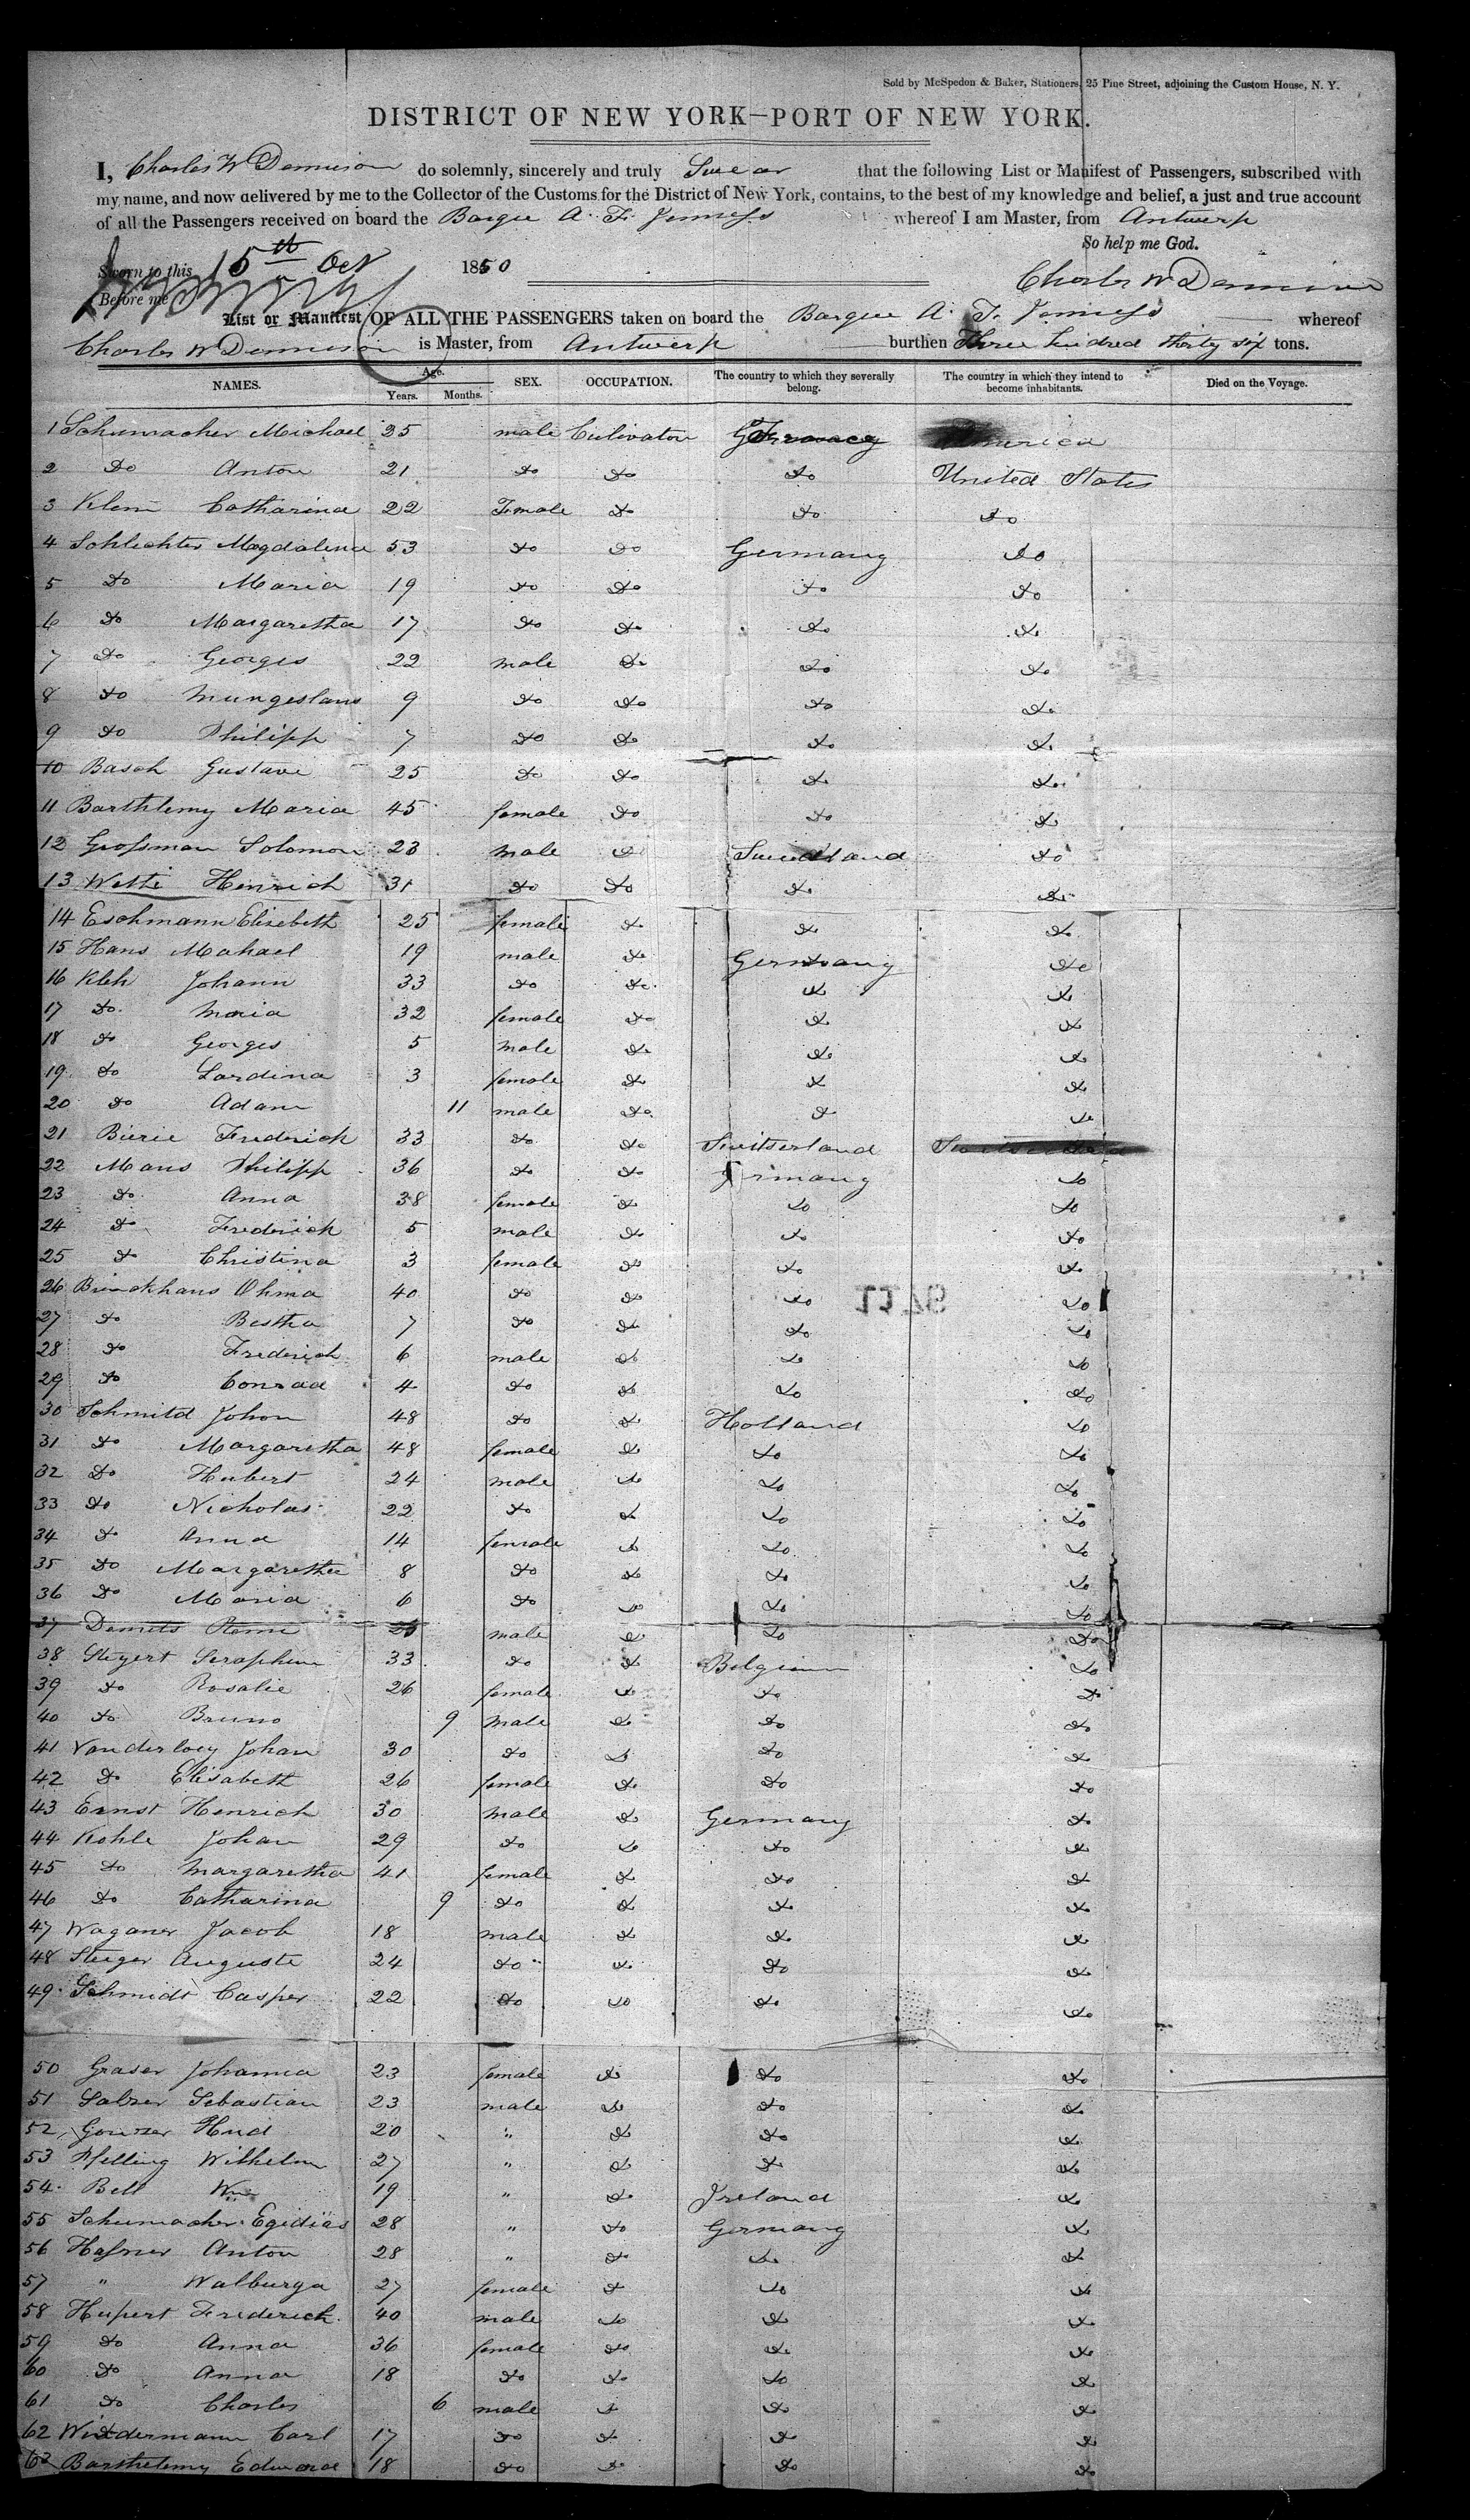 Sold by McSpedon & Baker, Stationers, 25 Pine Street, adjoining the Custom House, N. Y.
DISTRICT OF NEW YORK—PORT OF NEW YORK.
I, Charles W Dennison do solemnly, sincerely and truly Swear that the following List or Manifest of Passengers, subscribed with
my name, and now delivered by me to the Collector of the Customs for the District of New York, contains, to the best of my knowledge and belief, a just and true account
of all the Passengers received on board the Barque A. F. Jenness whereof I am Master, from Antwerp
So help me God.
Sworn to this 15th Oct 1850
Charles W Dennison
Before me
List or Manifest OF ALL THE PASSENGERS taken on board the Barque A. F. Jenness whereof
Charles W Dennison is Master, from Antwerp burthen Three hundred thirty six tons.
NAMES. Age. Years. Months. SEX. OCCUPATION. The country to which they severally belong. The country in which they intend to become inhabitants. Died on the Voyage.
1 Schumacher Michael 25 male Cultivator America
2 Do Anton 21 Do Do Do United States
3 Klem Catharina 22 Female Do Do Do
4 Schlechter Magdalena 53 Do Do Germany Do
5 Do Maria 19 Do Do Do Do
6 Do Margaretha 17 Do Do Do Do
7 Do Georges 22 male Do Do Do
8 Do 9 Do Do Do Do
9 Do Philipp 7 Do Do Do Do
10 Basch Gustave 25 Do Do Do Do
11 Barthlemy Maria 45 female Do Do Do
12 Grossman Solomon 23 male Do Do
13 Wetti Henrich 31 Do Do Do Do
14 Eschmann Elisebeth 25 female Do Do Do
15 Hans Mahael 19 male Do Germany Do
16 Kleh Johann 33 Do Do Do Do
17 Do Maria 32 female Do Do Do
18 Do Georges 5 male Do Do Do
19 Do Lardina 3 female Do Do Do
20 Do Adam 11 male Do Do Do
21 Bierie Frederick 33 Do Do Switserland
22 Mans Philipp 36 Do Do Germany Do
23 Do Anna 38 female Do Do Do
24 Do Frederick 5 male Do Do Do
25 Do Christina 3 female Do Do Do
26 Brinckhans Ohma 40 Do Do Do Do
27 Do Bertha 7 Do Do Do Do
28 Do Frederich 6 male Do Do Do
29 Do Conrad 4 Do Do Do Do
30 Schmitd Johon 48 Do Do Holland Do
31 Do Margaretha 48 female Do Do Do
32 Do Hubert 24 male Do Do Do
33 Do Nicholas 22 Do Do Do Do
34 Do Anna 14 female Do Do Do
35 Do Margaretha 8 Do Do Do Do
36 Do Maria 6 Do Do Do Do
37 male Do Do Do
38 Steyert Seraphim 33 Do Do Belgium Do
39 Do Rosalie 26 female Do Do Do
40 Do Bruno 9 male Do Do Do
41 Vanderloey Johan 30 Do Do Do Do
42 Do Elisabeth 26 female Do Do Do
43 Ernst Henrich 30 male Do Germany Do
44 Kohle Johan 29 Do Do Do Do
45 Do Margaretha 41 female Do Do Do
46 Do Catharina 9 Do Do Do Do
47 Waganer Jacob 18 male Do Do Do
48 Steiger Auguste 24 Do Do Do Do
49 Schmidt Casper 22 Do Do Do Do
50 Graser Johanna 23 female Do Do Do
51 Salzer Sebastian 23 male Do Do Do
52 20 " Do Do Do
53 Pfelling Wilhelm 27 " Do Do Do
54 Bell Wm 19 " Do Ireland Do
55 Schumacher Egidias 28 " Do Germany Do
56 Hafner Anton 28 " Do Do Do
57 " Walburga 27 female Do Do Do
58 Hupert Frederick 40 male Do Do Do
59 Do Anna 36 female Do Do Do
60 Do Anna 18 Do Do Do Do
61 Do Charles 6 male Do Do Do
62 Windermann Carl 17 Do Do Do Do
63 Barthelemy Edward 18 Do Do Do Do